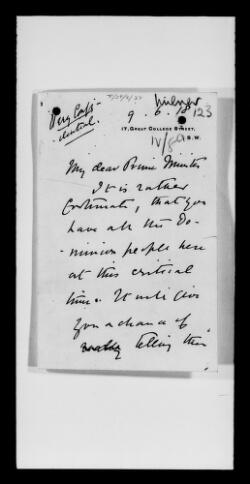 Very Confi-
dential.
Milner
9. 6. 18
123
17, GREAT COLLEGE STREET,
S.W.
My dear Prime Minister
It is rather
fortunate, that you
have all the Do-
minion people here
at this critical
time. It will give
you a chance of
really telling them